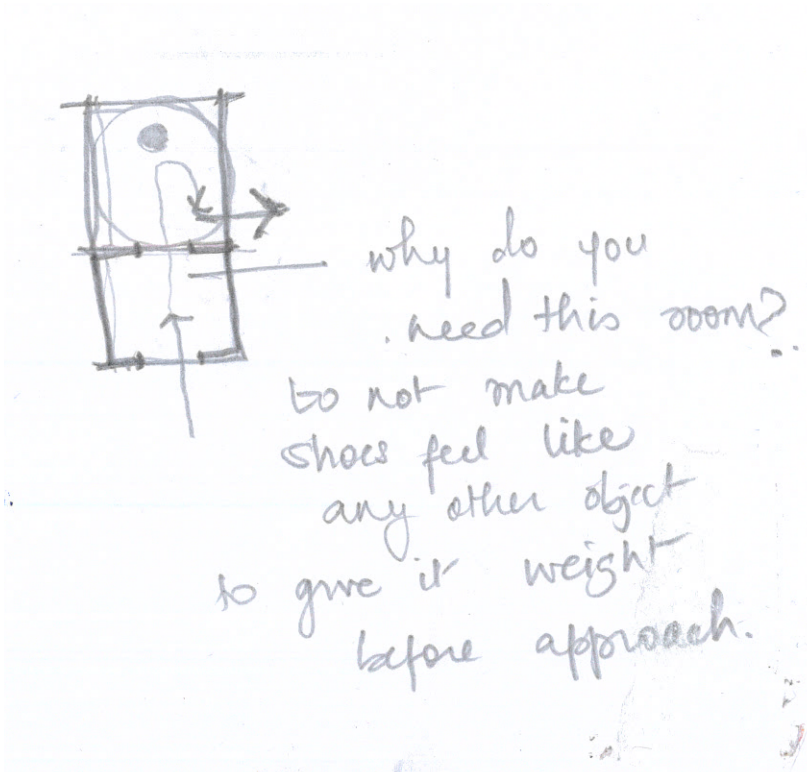 why do you
need this room?
to not make
shoes feel like
any other object
to give it weight
before approach.